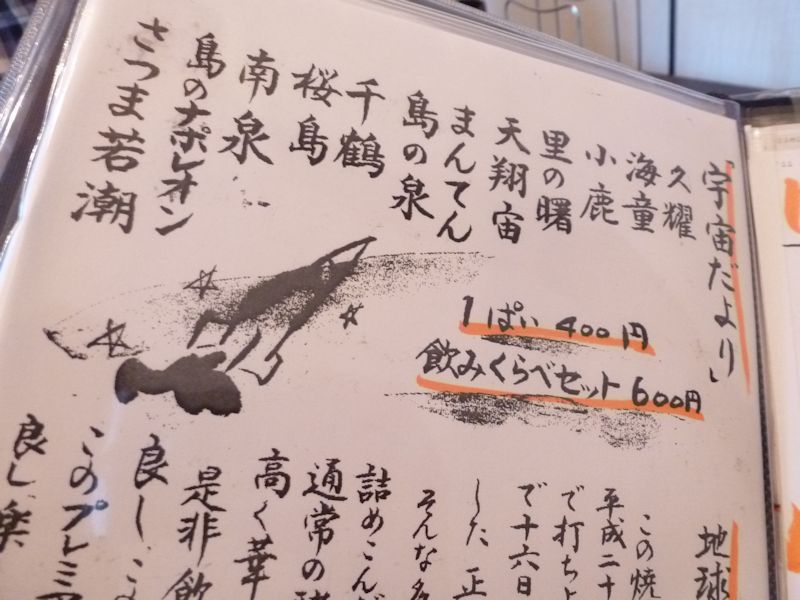 「宇宙だより」
久耀
海童
小鹿
里の曙
天翔宙
まんてん
島の泉
千鶴
桜島
南泉
島のナポレオン
さつま若潮
1ぱい 400円
飲みくらべセット 600円
地球
この焼
平成二十
で打ち上
で十六日
した 正
そんな
詰めこんだ
通常の
高く華
是非飲
良し こ
このプレミア
良し 楽